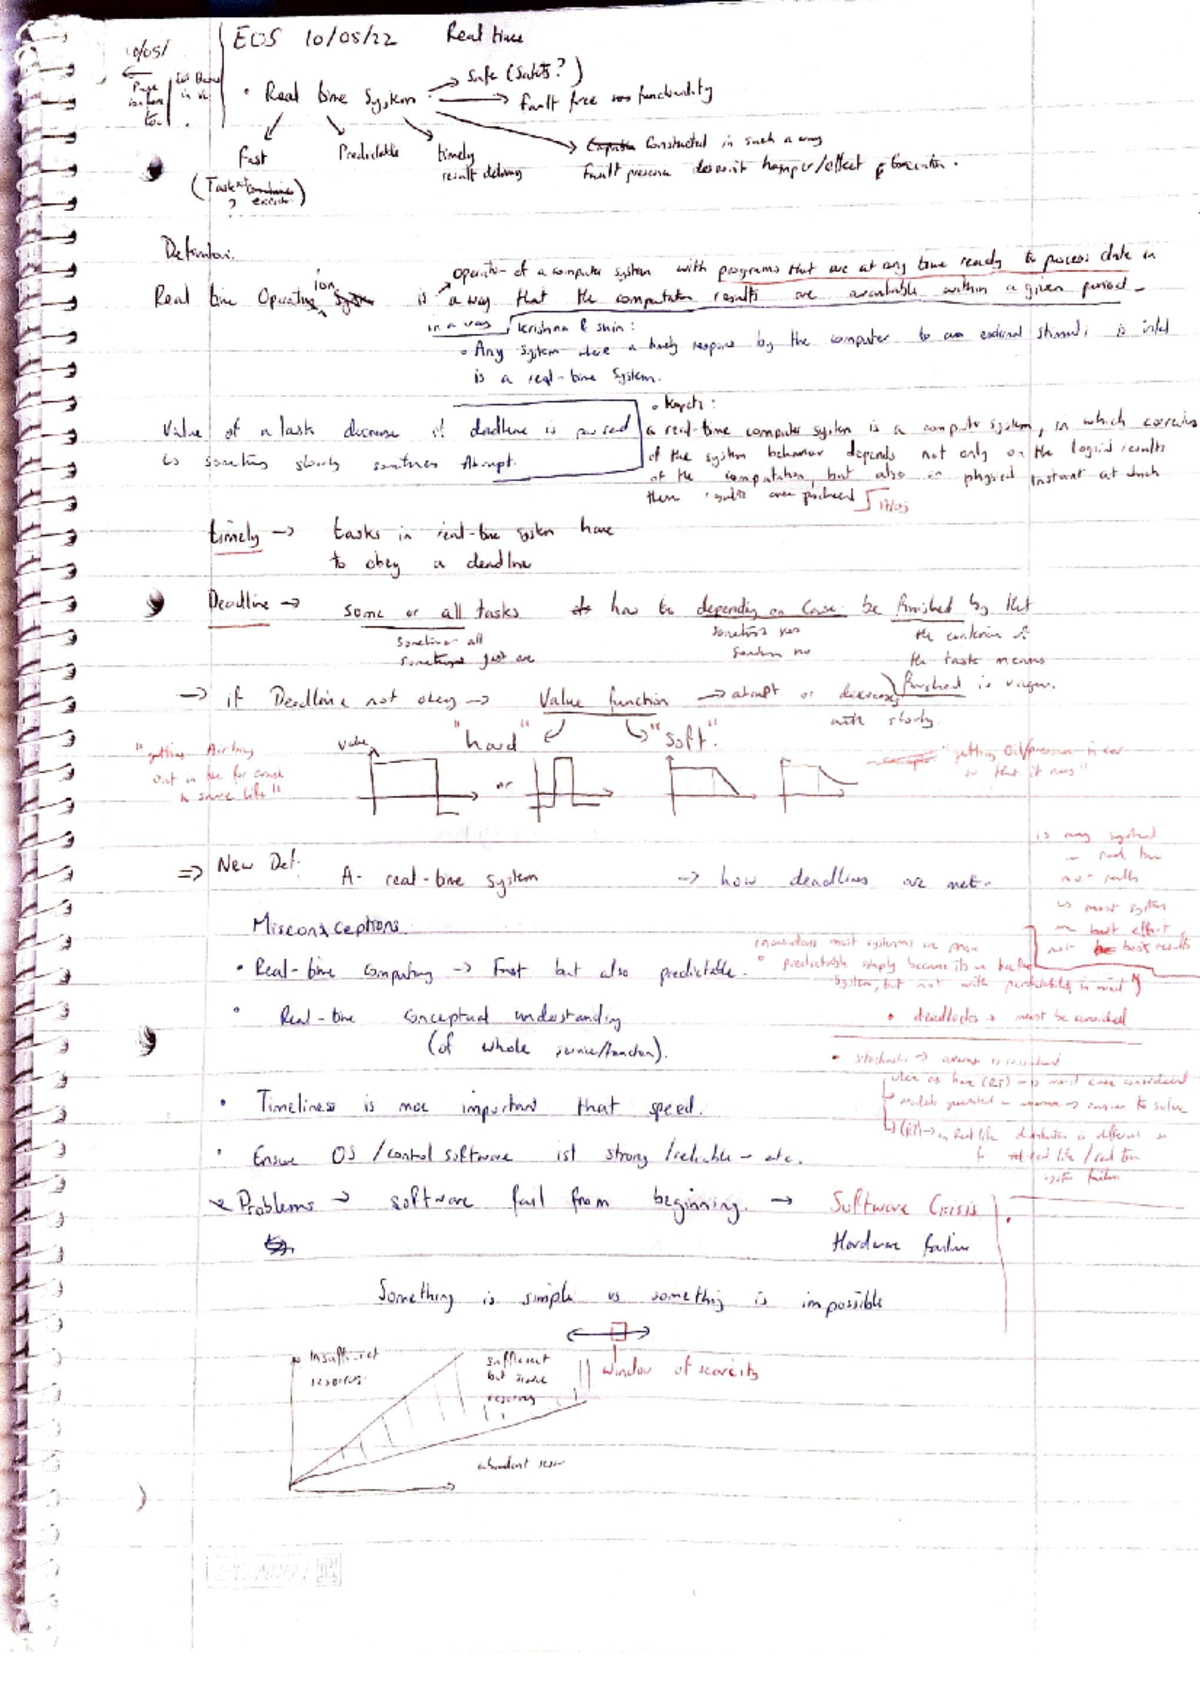 EOS 10/05/22 Real time
10/05/
• Real time System
Safe (Safety?)
fault free functionality
Constructed in such a way
fault presence doesn't hamper/effect
Fast
Predictable
timely
result delivery
(Task
Definition.
operation of a computer system with programs that are at any time ready to process data in
Real time Operation is a way that the computation results are available within a given period
in a way
Krishna & Shin:
• Any system where a timely response by the computer to an external stimuli is vital
is a real-time System.
• Kopetz:
Value of a task decrease if deadline is passed
a real-time computer system is a computer system, in which correctness
is sometimes slowly sometimes Abrupt.
of the system behavior depends not only on the logical results
of the computation, but also in physical instant at which
these results are produced
17/05
timely → tasks in real-time system have
to obey a deadline
Deadline → some or all tasks have to depending on Case be finished by that
sometimes all
sometimes just one
sometimes yes
sometimes no
the criterion of
the task means
finished is vague.
→ if Deadline not obey → Value function → abrupt or decrease
with slowly.
"hard" "soft".
Value
or
"getting Air bag
out in for crash
to save life"
"getting Oil/pressure in car
so that it runs"
⇒ New Def:
A- real-time system → how deadlines are met.
is any system
real time
not really
↳ most system
are best effort,
not best results
Misconceptions
• Real-time Computing → Fast but also predictable.
most systems are
predictable simply because its a
system, but not with predictability in mind
• Real-time Conceptual understanding
(of whole service/function).
• deadlocks → must be avoided
• stochastic → average is considered
(RT) → worst case considered
easier to solve
(RT) → in Real life distribution is different so
system failure
• Timeliness is more important that speed.
• Ensure OS /control software ist strong /reliable - etc.
Problems → software fail from beginning. → Software Crisis
Hardware failure
Something is simple vs something is impossible
window of scarcity
Insufficient
resources
sufficient
but scarce
resources
abundant